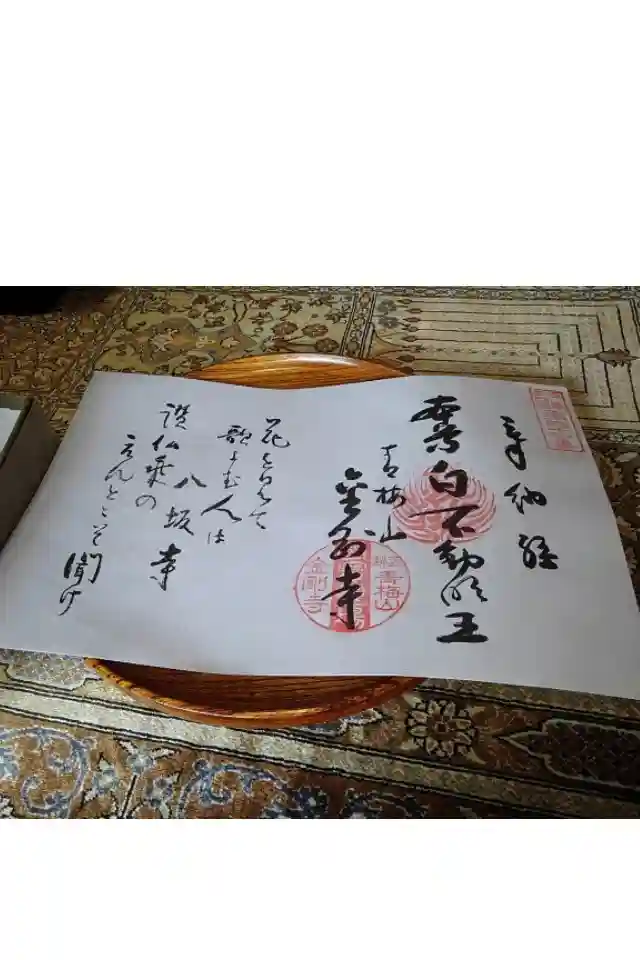 奉納経
白不動明王
青梅山
金剛寺
青梅山
金剛寺
花を見て
歌よむ人は
八坂寺
讃仏乗の
えんとこそ
聞け